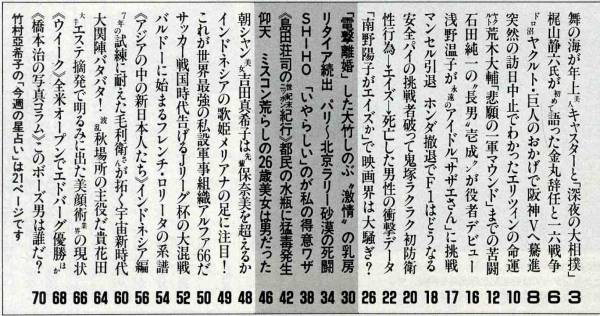 舞の海が年上美人キャスターと「深夜の大相撲」 3
梶山静六氏が初めて語った金丸辞任と一六戦争 6
ドロ沼ヤクルト・巨人のおかげで阪神Vへ驀進 8
突然の訪日中止でわかったエリツィンの命運 10
ヤクルト荒木大輔「悲願の一軍マウンド」までの苦闘 12
石田純一の〝長男〟壱成〟が役者デビュー 16
浅野温子が永遠のアイドル「サザエさん」に挑戦 17
マンセル引退 ホンダ撤退でF1はどうなる 18
安全パイの挑戦者破って鬼塚ラクラク初防衛 20
性行為→エイズ→死亡した男性の衝撃データ 22
「南野陽子がエイズか」で映画界は大騒ぎ? 26
「電撃離婚」した大竹しのぶ〝激情〟の乳房 30
リタイア続出 パリ〜北京ラリー砂漠の死闘 34
SHIHO「いやらしい」のが私の得意ワザ 38
《島田荘司の世紀末紀行》都民の水瓶に猛毒発生 42
仰天 ミスコン荒らしの26歳美女は男だった 46
朝シャン美女吉田真希子は先輩保奈美を超えるか 48
インドネシアの歌姫メリアナの足に注目! 49
これが世界最強の私設軍事組織アルファ66だ 50
サッカー戦国時代告げるJリーグ杯の大混戦 52
バルドーに始まるフレンチ・ロリータの系譜 54
《アジアの中の新日本人たち》インドネシア編 56
7年の試練に耐えた毛利衛さんが拓く宇宙新時代 60
大関陣バタバタ!波乱秋場所の主役だ貴花田 64
大エステ摘発で明るみに出た美顔術業界の現状 66
《ウイーク》全米オープンでエドバーグ優勝ほか 68
《橋本治の写真コラム》このボーズ男は誰だ? 70
竹村亜希子の「今週の星占い」は21ページです